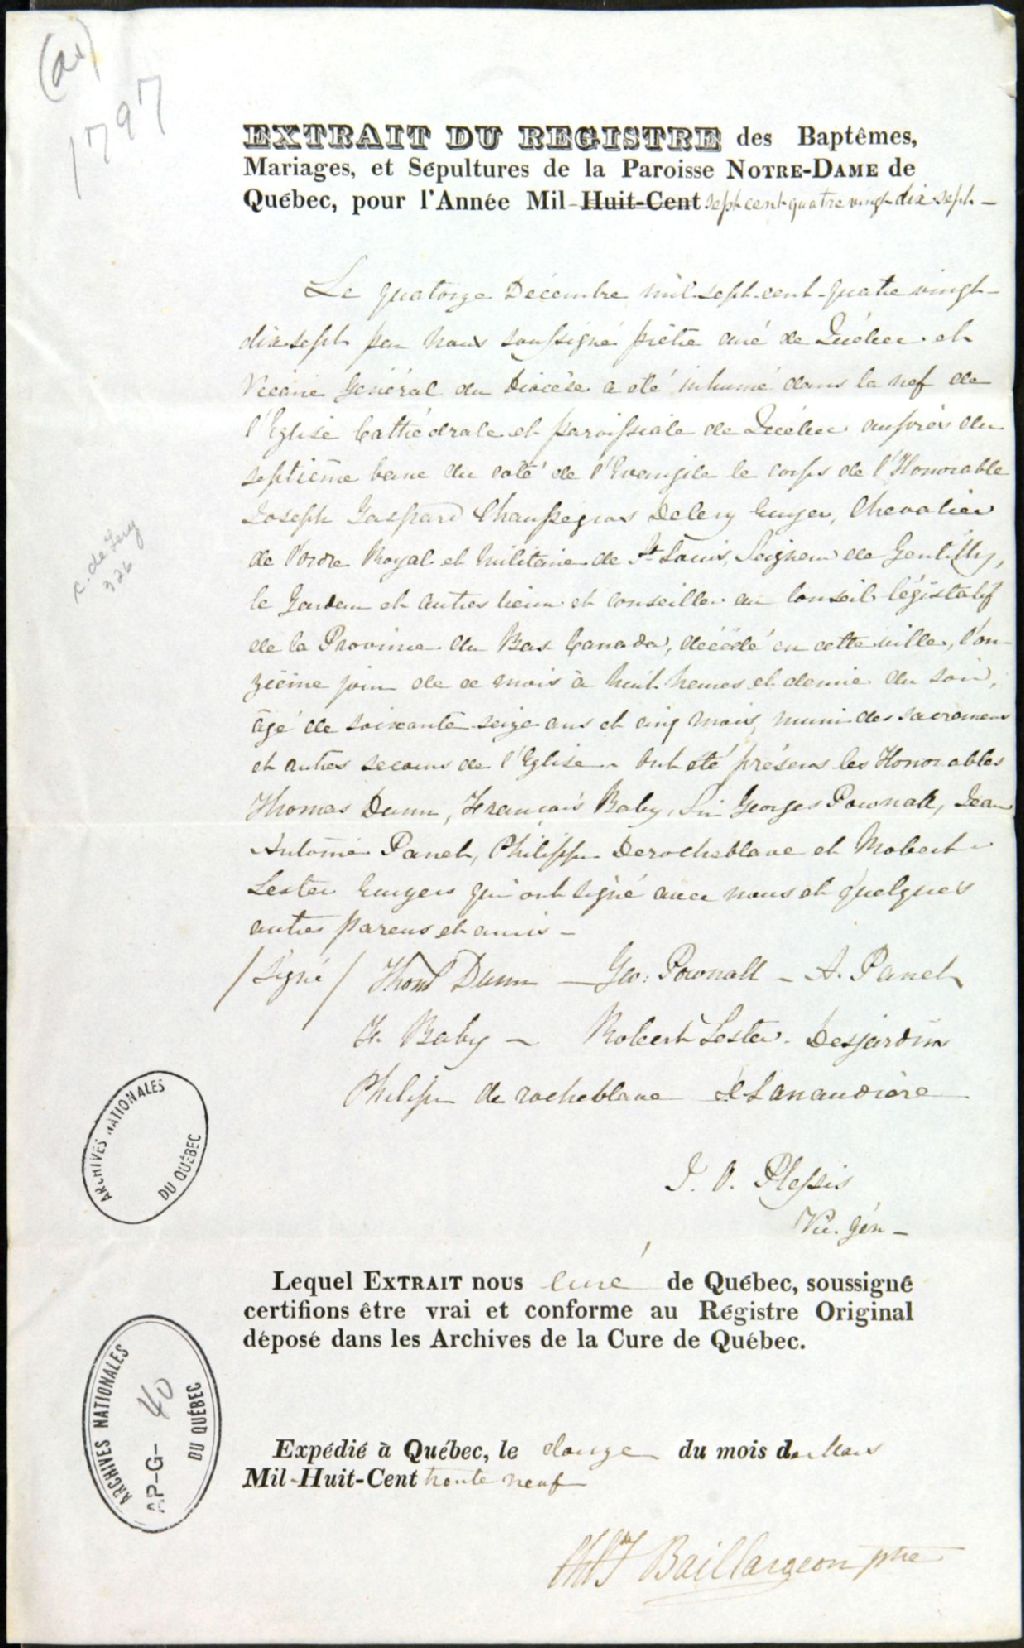 (a)
1797
EXTRAIT DU REGISTRE des Baptêmes,
Mariages, et Sépultures de la Paroisse NOTRE-DAME de
Québec, pour l'Année Mil-Huit-Cent sept cent quatre vingt dix sept -
Le quatorze Décembre mil-sept-cent-quatre vingt-
dix sept par nous soussigné prêtre curé de Québec et
Vicaire Général du Diocèse a été inhumé dans la nef de
l'Eglise Cathédrale et paroissiale de Québec auprès du
septième banc du coté de l'Evangile le corps de l'Honorable
Joseph Gaspard Chaussegros Delery Ecuyer, Chevalier
de l'Ordre Royal et Militaire de St Louis, Seigneur de Gentilly,
le Gardeur et autres lieux et conseiller au Conseil législatif
de la Province du Bas Canada, décédé en cette ville, l'on-
zième jour de ce mois à huit heures et demie du soir,
âgé de soixante seize ans et cinq mois, muni des sacremens
et autres secours de l'Eglise. Ont été présens les Honorables
Thomas Dunn, François Baby, Sir Georges Pownall, Jean
Antoine Panet, Philippe Derocheblave et Robert
Lester Ecuyers qui ont signé avec nous et quelques
autres parens et amis -
/ Signé / Thos Dunn - Geo: Pownall - A. Panet
F. Baby - Robert Lester. Desjardins
Philippe de rocheblave Lanaudière
J. O. Plessis
Vic. gén -
C. de Léry
326
Lequel EXTRAIT nous curé de Québec, soussigné
certifions être vrai et conforme au Régistre Original
déposé dans les Archives de la Cure de Québec.
Expédié à Québec, le douze du mois de Mars
Mil-Huit-Cent trente neuf
Baillargeon ptre
ARCHIVES NATIONALES
DU QUÉBEC
ARCHIVES NATIONALES
AP-G- 40
DU QUÉBEC